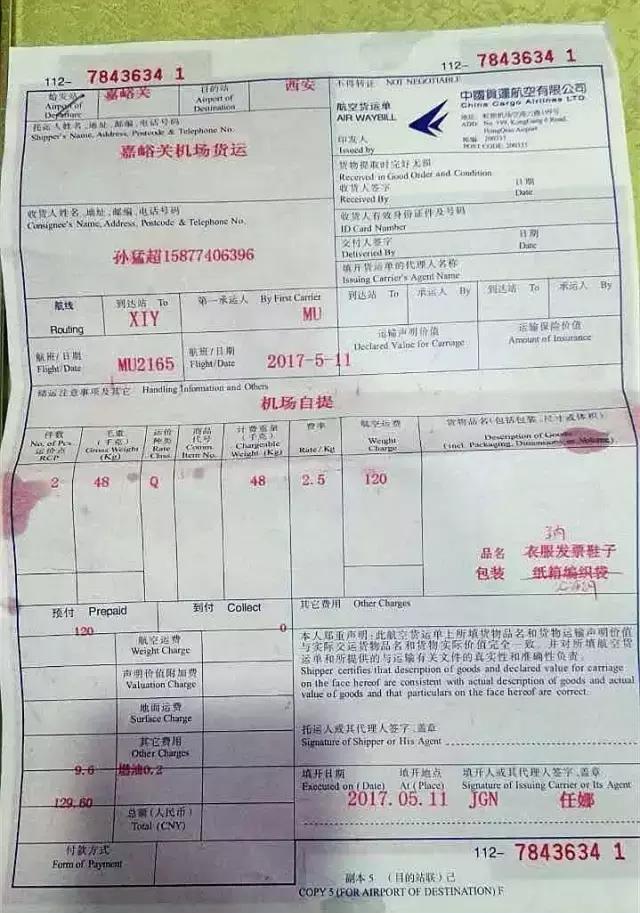 112- 7843634 1
112- 7843634 1
始发站
Airport of
Departure
嘉峪关
目的站
Airport of
Destination
西安
不得转让 NOT NEGOTIABLE
航空货运单
AIR WAYBILL
印发人
Issued by
中國貨運航空有限公司
China Cargo Airlines LTD.
托运人姓名、地址、邮编、电话号码
Shipper's Name, Address, Postcode & Telephone No.
嘉峪关机场货运
货物提取时完好无损
Received in Good Order and Condition
收货人签字
Received By
日期
Date
收货人姓名、地址、邮编、电话号码
Consignee's Name, Address, Postcode & Telephone No.
孙猛超15877406396
收货人有效身份证件及号码
ID Card Number
交付人签字
Delivered By
日期
Date
填开货运单的代理人名称
Issuing Carrier's Agent Name
航线
Routing
到达站 To
XIY
第一承运人 By First Carrier
MU
到达站 To
承运人 By
到达站 To
承运人 By
航班/日期
Flight/Date
MU2165
航班/日期
Flight/Date
2017-5-11
运输声明价值
Declared Value for Carriage
运输保险价值
Amount of Insurance
储运注意事项及其它 Handling Information and Others
机场自提
件数
No. of Pcs.
运价点
RCP
毛重
(千克)
Gross Weight
(Kg)
运价
种类
Rate
Class
商品
代号
Comm.
Item No.
计费重量
(千克)
Chargeable
Weight (Kg)
费率
Rate/Kg
航空运费
Weight
Charge
货物品名(包括包装、尺寸或体积)
Description of Goods
(incl. Packaging, Dimensions or Volume)
2 48 Q 48 2.5 120
品名 衣服发票鞋子
包装 纸箱编织袋
预付 Prepaid
到付 Collect
其它费用 Other Charges
120
0
航空运费
Weight Charge
声明价值附加费
Valuation Charge
地面运费
Surface Charge
其它费用
Other Charges
9.6 燃油0.2
129.60
总额(人民币)
Total (CNY)
付款方式
Form of Payment
本人郑重声明:此航空货运单上所填货物品名和货物运输声明价值
与实际交运货物品名和货物实际价值完全一致。并对所填航空货
运单和所提供的与运输有关文件的真实性和准确性负责。
Shipper certifies that description of goods and declared value for carriage
on the face hereof are consistent with actual description of goods and actual
value of goods and that particulars on the face hereof are correct.
托运人或其代理人签字、盖章
Signature of Shipper or His Agent
填开日期
Executed on (Date)
填开地点
At (Place)
填开人或其代理人签字、盖章
Signature of Issuing Carrier or Its Agent
2017.05.11 JGN 任娜
112- 7843634 1
副本 5 (目的站联)己
COPY 5 (FOR AIRPORT OF DESTINATION) F